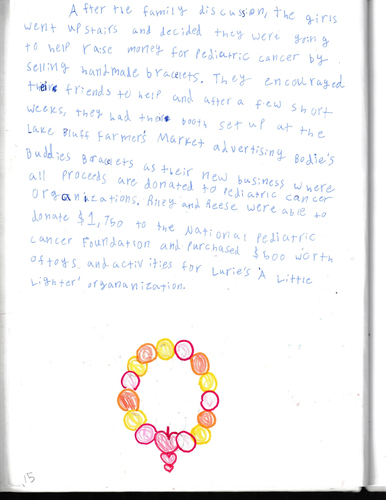 After the family discussion, the girls
went upstairs and decided they were going
to help raise money for pediatric cancer by
selling handmade bracelets. They encouraged
their friends to help and after a few short
weeks, they had their booth set up at the
Lake Bluff Farmer's Market advertising Bodie's
Buddies Bracelets as their new business where
all proceeds are donated to pediatric cancer
organizations. Riley and Reese were able to
donate $1,750 to the National Pediatric
cancer Foundation and purchased $600 worth
of toys and activities for Lurie's 'A Little
Lighter' organanization.
15